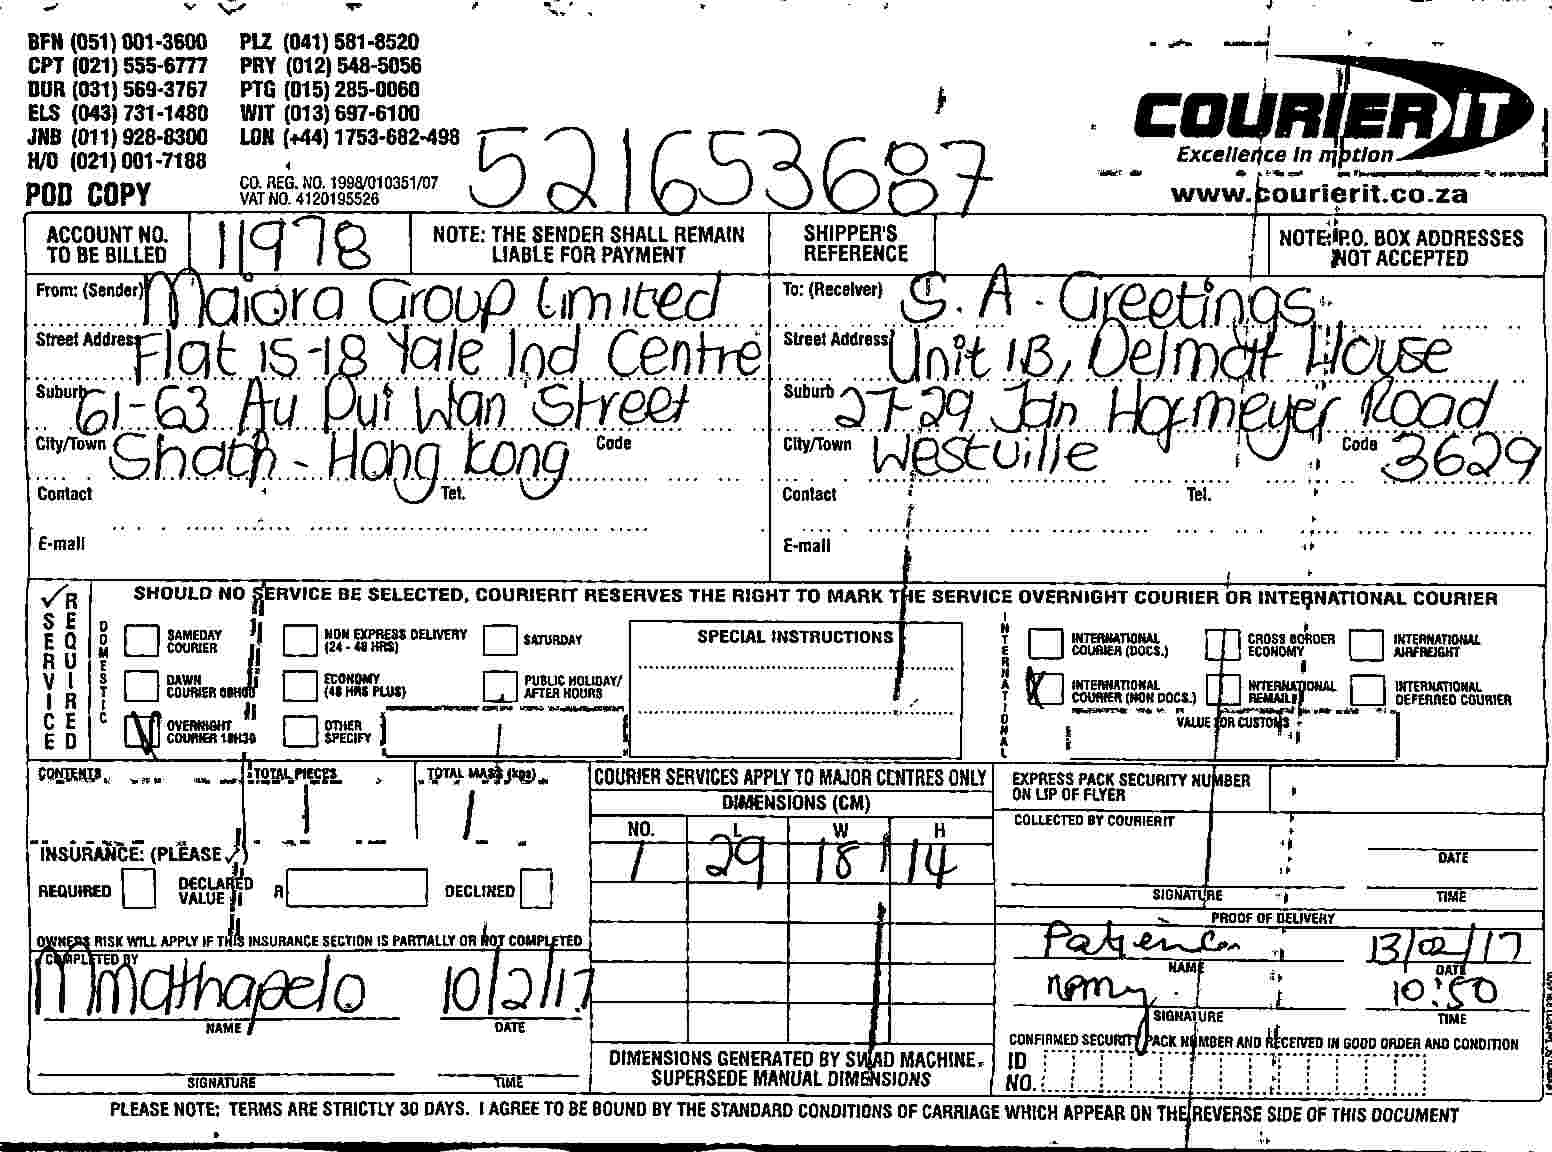 BFN (051) 001-3600 PLZ (041) 581-8520
CPT (021) 555-6777 PRY (012) 548-5056
DUR (031) 569-3767 PTG (015) 285-0060
ELS (043) 731-1480 WIT (013) 697-6100
JNB (011) 928-8300 LON (+44) 1753-682-498
H/O (021) 001-7188
POD COPY
CO. REG. NO. 1998/010351/07
VAT NO. 4120195526
521653687
COURIER IT
Excellence in motion
www.courierit.co.za
ACCOUNT NO. TO BE BILLED 11978
NOTE: THE SENDER SHALL REMAIN LIABLE FOR PAYMENT
SHIPPER'S REFERENCE
NOTE: P.O. BOX ADDRESSES NOT ACCEPTED
From: (Sender) Maiora Group Limited
Street Address Flat 15-18 Yale Ind Centre
Suburb 61-63 Au Pui Wan Street
City/Town Shatin - Hong Kong Code
Contact Tel.
E-mail
To: (Receiver) S.A. Greetings
Street Address Unit 1B, Delmat House
Suburb 27-29 Jan Hofmeyer Road
City/Town Westville Code 3629
Contact Tel.
E-mail
SERVICE REQUIRED
SHOULD NO SERVICE BE SELECTED, COURIERIT RESERVES THE RIGHT TO MARK THE SERVICE OVERNIGHT COURIER OR INTERNATIONAL COURIER
DOMESTIC
SAMEDAY COURIER
NON EXPRESS DELIVERY (24 - 48 HRS)
SATURDAY
DAWN COURIER 08H00
ECONOMY (48 HRS PLUS)
PUBLIC HOLIDAY/ AFTER HOURS
OVERNIGHT COURIER 10H30
OTHER SPECIFY
SPECIAL INSTRUCTIONS
INTERNATIONAL
INTERNATIONAL COURIER (DOCS.)
CROSS BORDER ECONOMY
INTERNATIONAL AIRFREIGHT
INTERNATIONAL COURIER (NON DOCS.)
INTERNATIONAL REMAIL
INTERNATIONAL DEFERRED COURIER
VALUE FOR CUSTOMS
CONTENTS
TOTAL PIECES 1
TOTAL MASS (kgs) 1
INSURANCE: (PLEASE ✓)
REQUIRED
DECLARED VALUE R
DECLINED
OWNERS RISK WILL APPLY IF THIS INSURANCE SECTION IS PARTIALLY OR NOT COMPLETED
COMPLETED BY
Mmathapelo 10/2/17
NAME DATE
SIGNATURE TIME
COURIER SERVICES APPLY TO MAJOR CENTRES ONLY
DIMENSIONS (CM)
NO. L W H
1 29 18 14
DIMENSIONS GENERATED BY SWAD MACHINE,
SUPERSEDE MANUAL DIMENSIONS
EXPRESS PACK SECURITY NUMBER ON LIP OF FLYER
COLLECTED BY COURIERIT
DATE
SIGNATURE TIME
PROOF OF DELIVERY
13/02/17
NAME DATE
10:50
SIGNATURE TIME
CONFIRMED SECURITY PACK NUMBER AND RECEIVED IN GOOD ORDER AND CONDITION
ID NO.
PLEASE NOTE: TERMS ARE STRICTLY 30 DAYS. I AGREE TO BE BOUND BY THE STANDARD CONDITIONS OF CARRIAGE WHICH APPEAR ON THE REVERSE SIDE OF THIS DOCUMENT